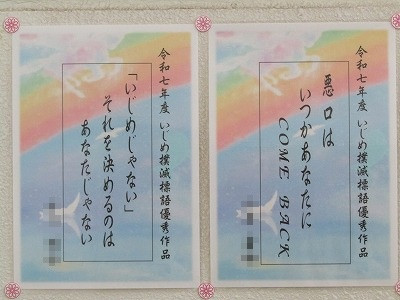 令和七年度 いじめ撲滅標語優秀作品
悪口は
いつかあなたに
COME BACK
令和七年度 いじめ撲滅標語優秀作品
「いじめじゃない」
それを決めるのは
あなたじゃない